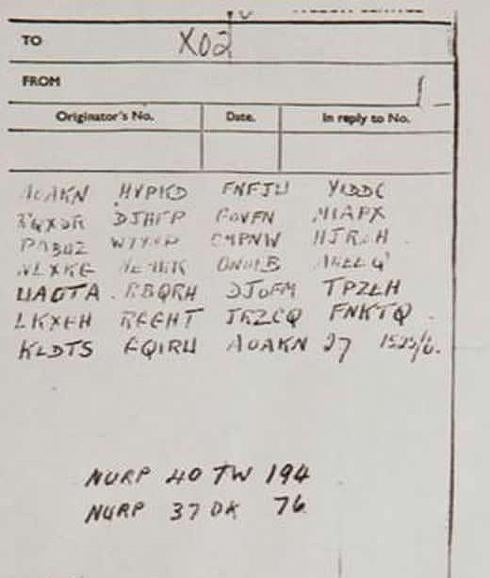 TO X02
FROM
Originator's No. Date. In reply to No.
AOAKN HVPKD FNFJW YIDDC
RQXSR DJHFP GOVFN MIAPX
PABUZ WYYNP CMPNW HJRZH
NLXKG MEMKK ONOIB AKEEQ
UAOTA RBQRH DJOFM TPZEH
LKXGH RGGHT JRZCQ FNKTQ
KLDTS FQIRU AOAKN 27 1525/6.
NURP 40 TW 194
NURP 37 DK 76